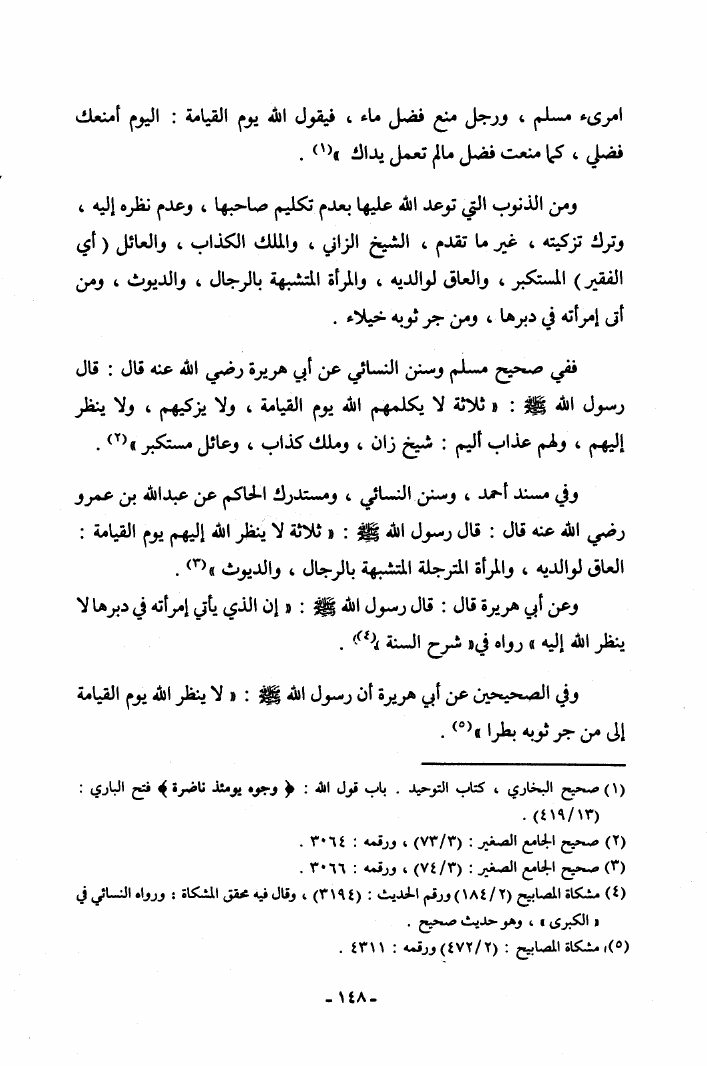 امرىء مسلم ، ورجل منع فضل ماء ، فيقول الله يوم القيامة : اليوم أمنعك
فضلي ، كما منعت فضل مالم تعمل يداك »(١) .
ومن الذنوب التي توعد الله عليها بعدم تكليم صاحبها ، وعدم نظره إليه ،
وترك تزكيته ، غير ما تقدم ، الشيخ الزاني ، والملك الكذاب ، والعائل ( أي
الفقير ) المستكبر ، والعاق لوالديه ، والمرأة المتشبهة بالرجال ، والديوث ، ومن
أتى إمرأته في دبرها ، ومن جر ثوبه خيلاء .
ففي صحيح مسلم وسنن النسائي عن أبي هريرة رضي الله عنه قال : قال
رسول الله ﷺ : « ثلاثة لا يكلمهم الله يوم القيامة ، ولا يزكيهم ، ولا ينظر
إليهم ، ولهم عذاب أليم : شيخ زان ، وملك كذاب ، وعائل مستكبر »(٢) .
وفي مسند أحمد ، وسنن النسائي ، ومستدرك الحاكم عن عبدالله بن عمرو
رضي الله عنه قال : قال رسول الله ﷺ : « ثلاثة لا ينظر الله إليهم يوم القيامة :
العاق لوالديه ، والمرأة المترجلة المتشبهة بالرجال ، والديوث »(٣) .
وعن أبي هريرة قال : قال رسول الله ﷺ : « إن الذي يأتي إمرأته في دبرها لا
ينظر الله إليه » رواه في« شرح السنة »(٤) .
وفي الصحيحين عن أبي هريرة أن رسول الله ﷺ : « لا ينظر الله يوم القيامة
إلى من جر ثوبه بطرا »(٥) .
(١) صحيح البخاري ، كتاب التوحيد . باب قول الله : ﴿ وجوه يومئذ ناضرة ﴾ فتح الباري :
(٤١٩/١٣) .
(٢) صحيح الجامع الصغير : (٧٣/٣) ، ورقمه : ٣٠٦٤ .
(٣) صحيح الجامع الصغير : (٧٤/٣) ، ورقمه : ٣٠٦٦ .
(٤) مشكاة المصابيح (١٨٤/٢) ورقم الحديث : (٣١٩٤) ، وقال فيه محقق المشكاة : ورواه النسائي في
« الكبرى » ، وهو حديث صحيح .
(٥) مشكاة المصابيح : (٤٧٢/٢) ورقمه : ٤٣١١ .
- ١٤٨ -